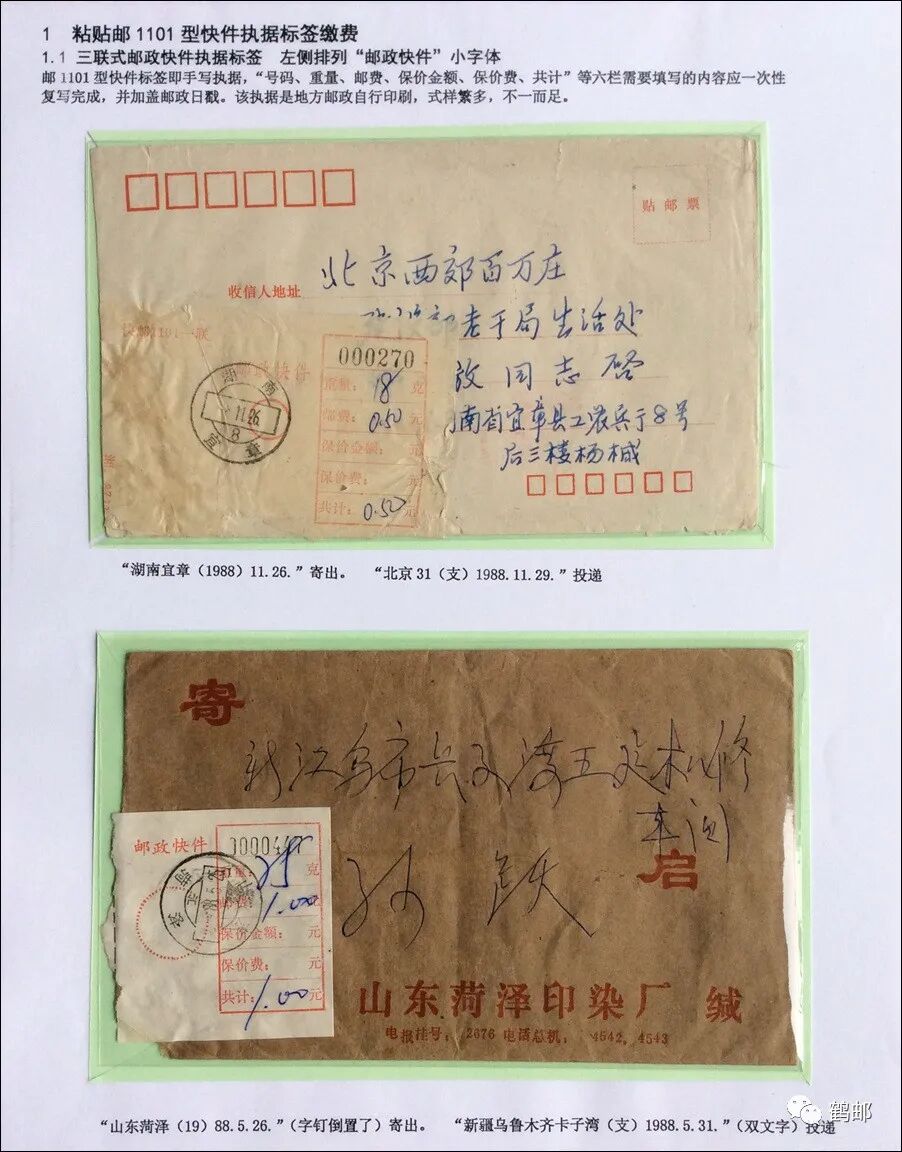 1 粘贴邮1101型快件执据标签缴费
1.1 三联式邮政快件执据标签 左侧排列“邮政快件”小字体
邮1101型快件标签即手写执据，“号码、重量、邮费、保价金额、保价费、共计”等六栏需要填写的内容应一次性
复写完成，并加盖邮政日戳。该执据是地方邮政自行印刷，式样繁多，不一而足。
贴邮票
北京西郊百万庄
收信人地址
老干局生活处
同志启
南省宜章县工农兵于8号
后三楼杨槭
1101一联
邮政快件
000270
重量：18克
邮费：0.50元
保价金额：元
保价费：元
共计：0.50元
湖南
11.26
8
宜章
“湖南宜章（1988）11.26.”寄出。 “北京31（支）1988.11.29.”投递
寄
车间
启
邮政快件
25克
1.00
保价金额：元
保价费：元
共计：1.00元
山东菏泽印染厂 缄
电报挂号：2676 电话总机：4542，4543
“山东菏泽（19）88.5.26.”（字钉倒置了）寄出。 “新疆乌鲁木齐卡子湾（支）1988.5.31.”（双文字）投递
鹤邮